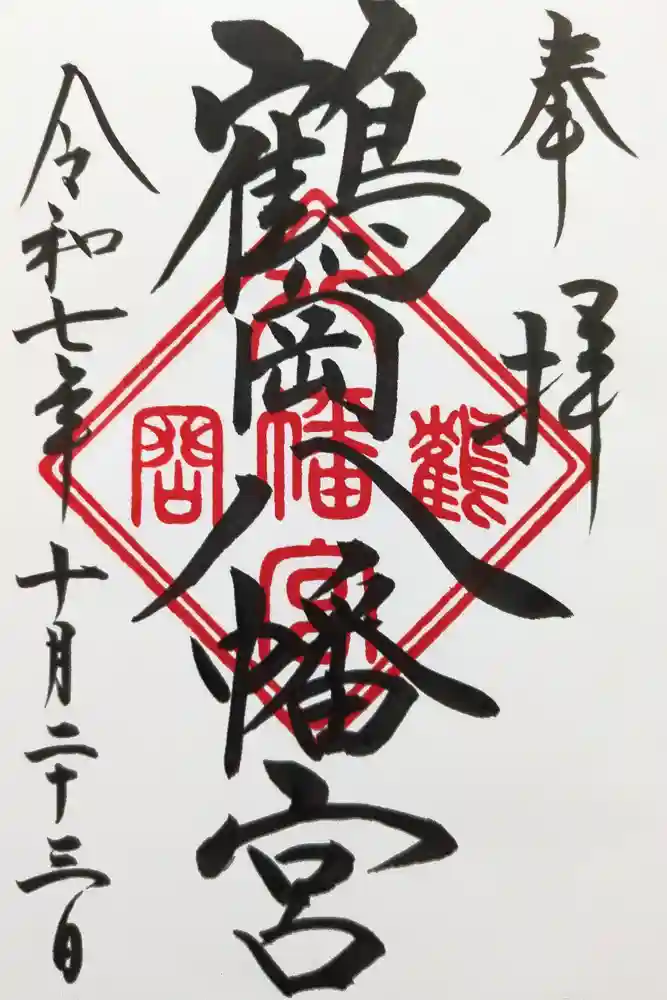 奉拝
鶴岡八幡宮
鶴
八幡宮
岡
令和七年十月二十三日